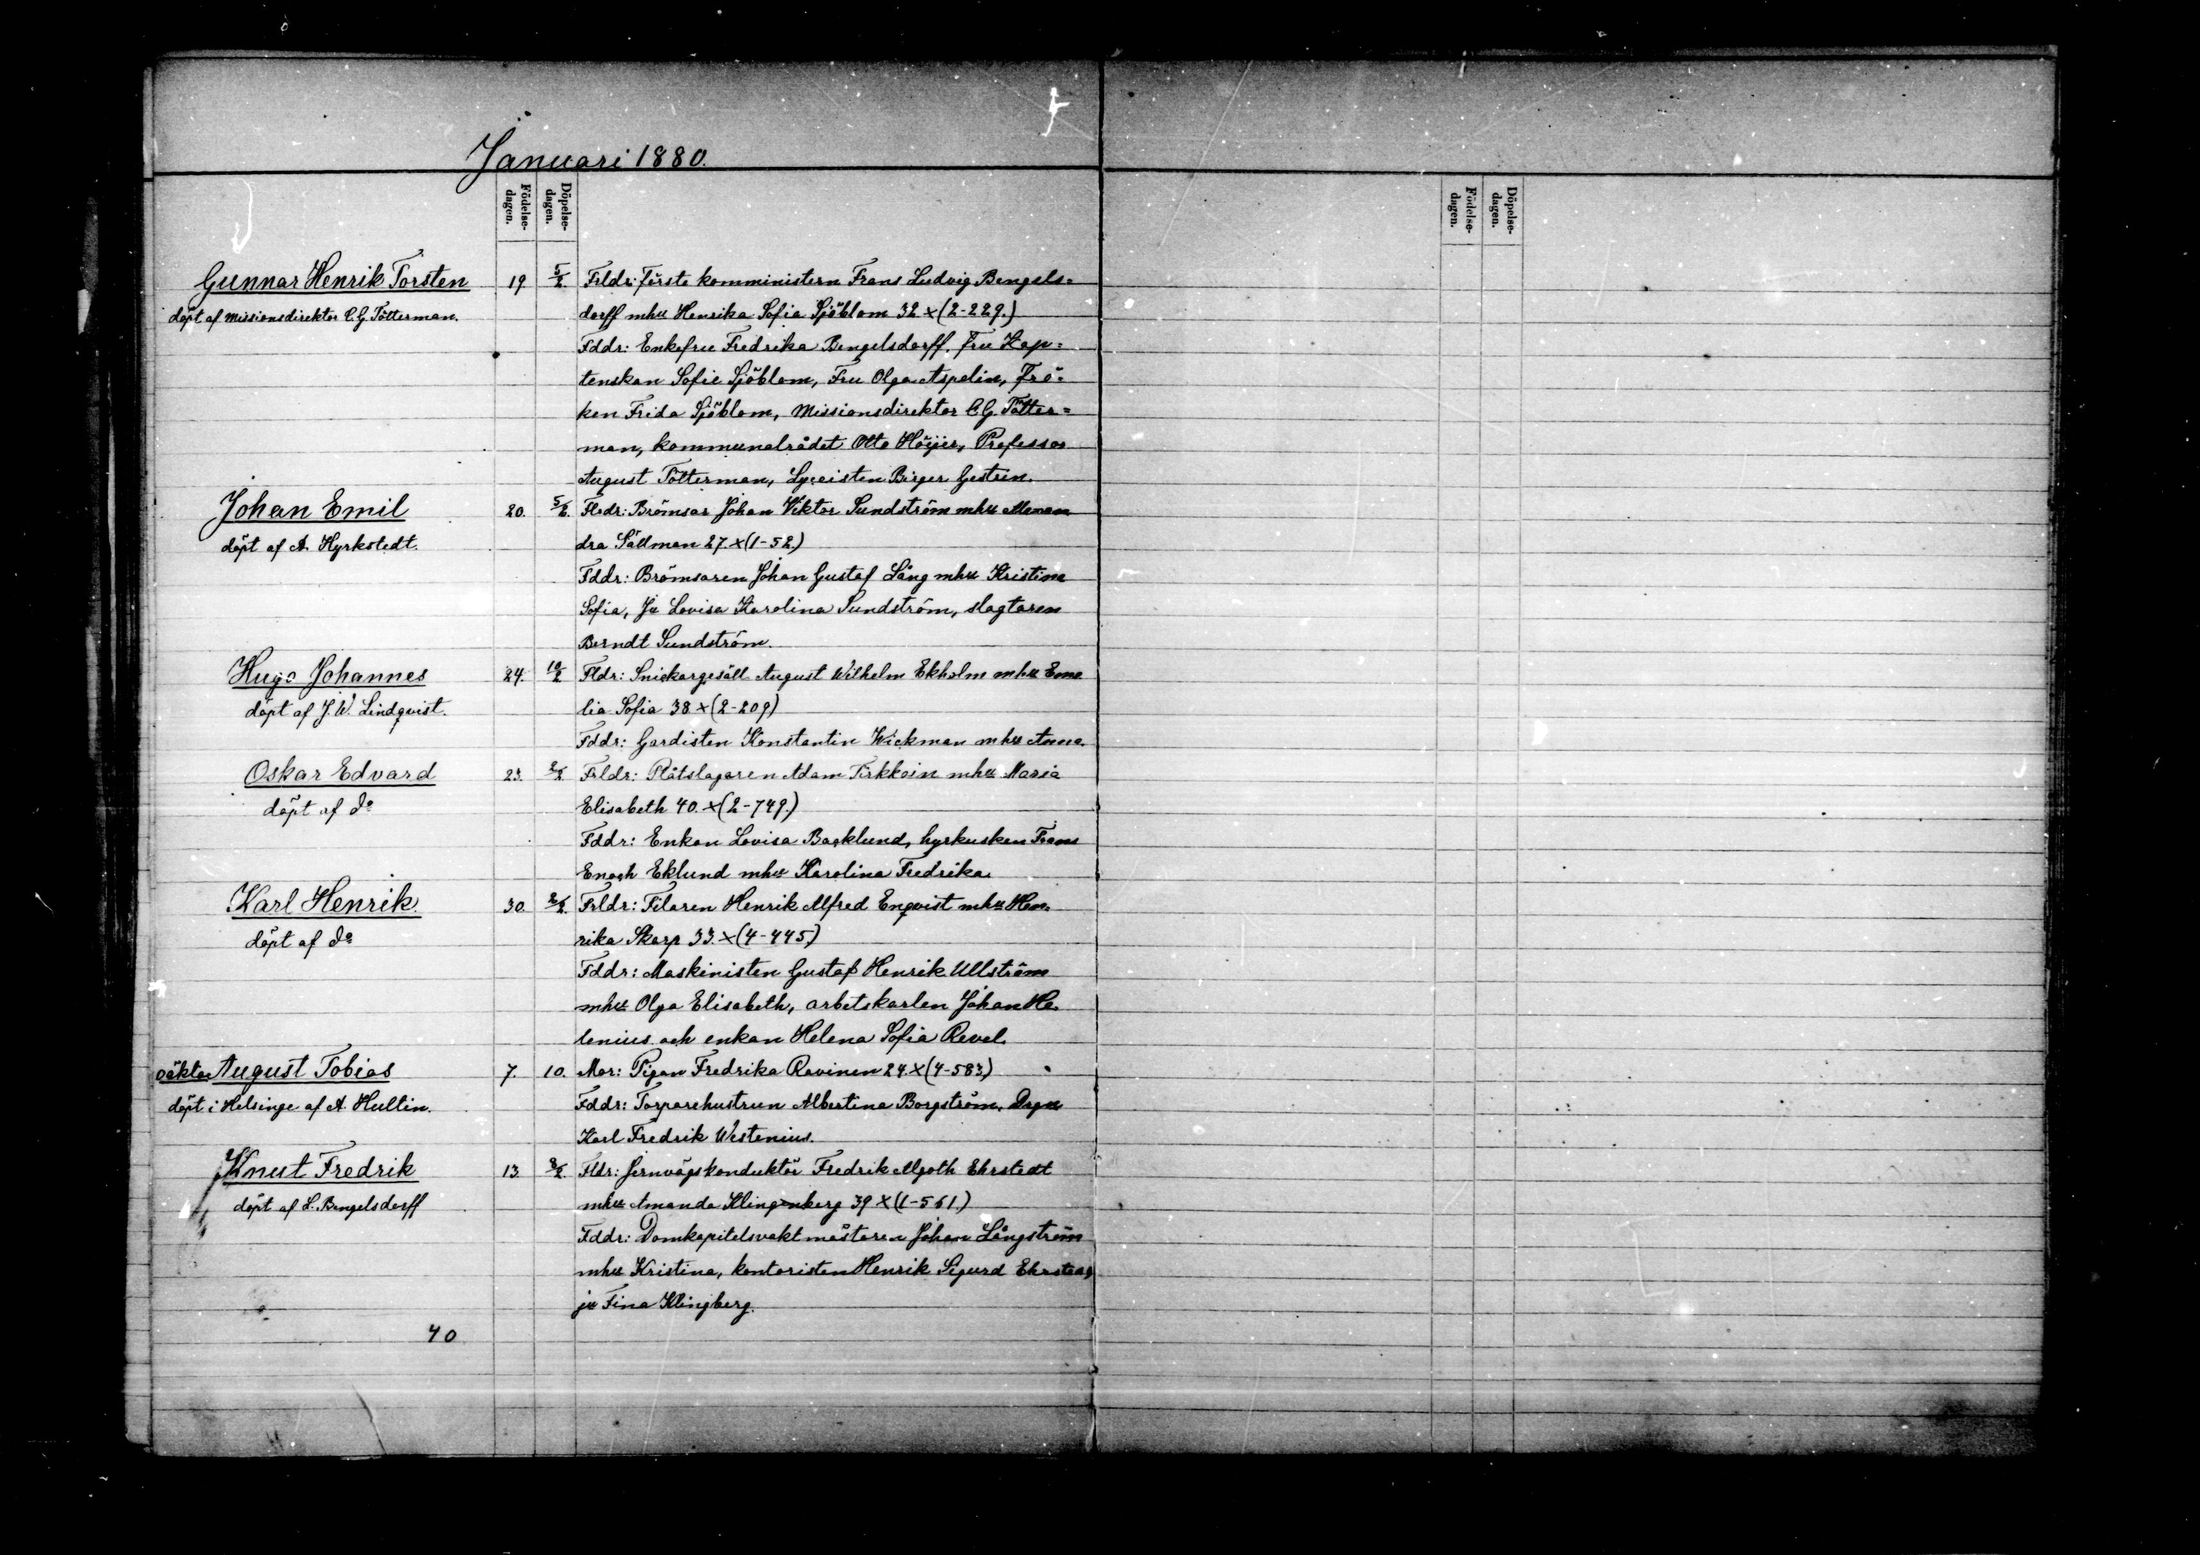 Januari 1880.
Födelse-
dagen.
Döpelse-
dagen.
Födelse-
dagen.
Döpelse-
dagen.
Gunnar Henrik Torsten 19 5/2 Frldr: förste komministern Frans Ludvig Bengels=
döpt af Missionsdirektor C.G. Tötterman. dorff mhu Henrika Sofia Sjöblom 32 x (2-229.)
Fddr: Enkefru Fredrika Bengelsdorff, Fru Kap=
tenskan Sofie Sjöblom, Fru Olga Aspelin, Frö=
ken Frida Sjöblom, Missionsdirektor C.G. Tötter=
man, kommunalrådet Otto Höijer, Professor
August Tötterman, Lyceisten Birger Gestrin.
Johan Emil 20. 5/2. Fldr: Brömsar Johan Viktor Sundström mhu
döpt af A. Hyrkstedt. dra Sällman 27. x (1-52)
Fddr: Brömsaren Johan Gustaf Lång mhu Kristina
Sofia, Ju Lovisa Karolina Sundström, slagtaren
Berndt Sundström.
Hugo Johannes 24. 10/2 Fldr: Snickargesäll August Wilhelm Ekholm mhu Eme
döpt af J.W. Lindqvist. lia Sofia 38 x (2-209)
Fddr: Gardisten Konstantin Wickman mhu Anna.
Oskar Edvard 23. 2/2 Frldr: Plåtslagaren Adam Tirkkoin mhu Maria
döpt af do Elisabeth 40. x (2-749.)
Fddr: Enkan Lovisa Backlund, hyrkusken Frans
Enoch Eklund mhu Karolina Fredrika.
Karl Henrik. 30. 2/2. Frldr: Filaren Henrik Alfred Enqvist mhu Hen
döpt af do rika Skarp 33. x (4-445)
Fddr: Maskinisten Gustaf Henrik Ullström
mhu Olga Elisabeth, arbetskarlen Johan He
lenius och enkan Helena Sofia Revel.
oäkta August Tobias 7. 10. Mor: Pigan Fredrika Ravinen 24. x (4-583)
döpt i Helsinge af A. Hultin. Fddr: Torparehustrun Albertina Borgström, Drgn
Karl Fredrik Westenius.
Knut Fredrik 13. 2/2. Fldr: Jernvägskonduktör Fredrik Algoth Ehrstedt
döpt af L. Bengelsdorff mhu Amanda Klingenberg 39 x (1-561.)
Fddr: Domkapitelsvaktmästaren Johan Långström
mhu Kristina, kontoristen Henrik Sigurd
ju Fina Klingberg.
40